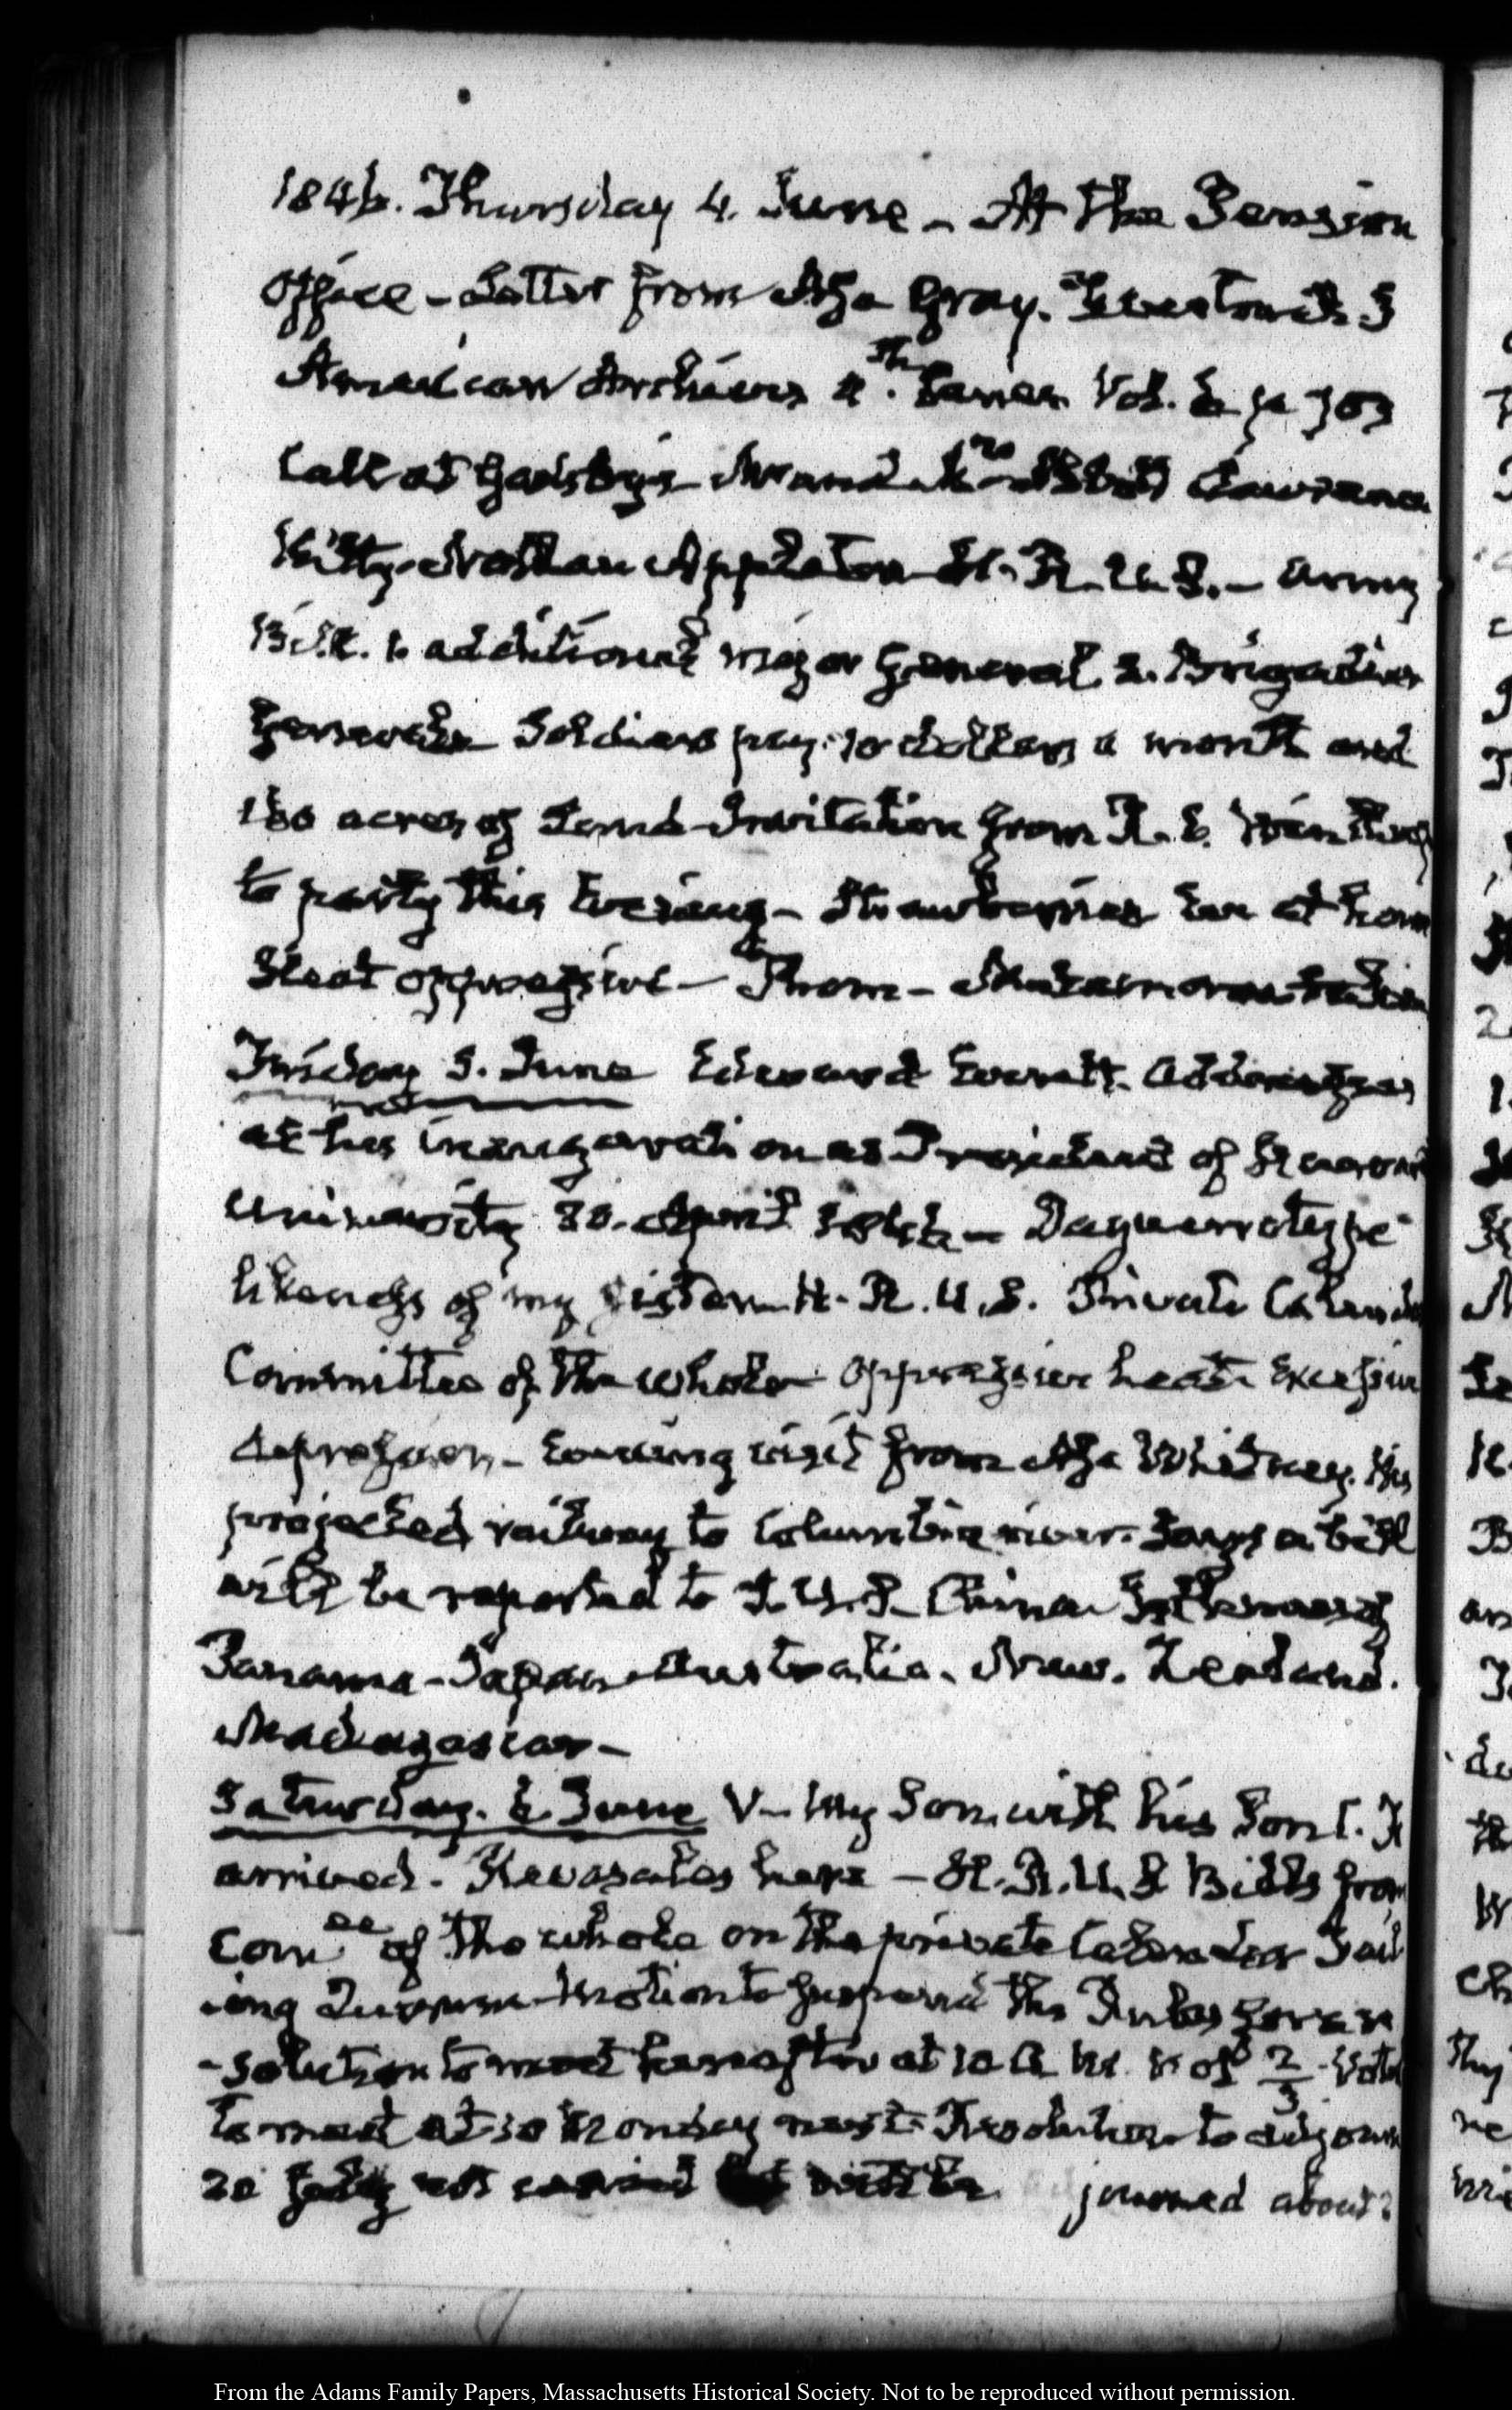 1846. Thursday 4. June – At the Pension
Office – Letter from Asa Gray.
American Archives 4.th Series Vol. 6 p 703
Call at Gadsby's Mr and Mrs Abbott Lawrence
Kitty. Nathan Appleton H. R. U. S. – Army
Bill. 1. additional major General 2. Brigadier
Generals Soldiers pay. 10 dollars a month and
160 acres of Land – Invitation from R. C. Winthrop
to party this Evening – Strawberries Ice at home
Heat oppressive – Therm –
Friday 5. June Edward Everett. Addresses
at his inauguration as President of Harvard
University 30. April 1846 – Daguerrotype
likeness of my sister – H. R. U. S. Private Calendar
Committee of the whole Oppressive heat Excessive
depression. – Evening visit from Asa Whitney. His
projected railway to Columbia river. Says a bill
will be reported to S. U. S. China Isthmus of
Panama – Japan – Australia. New. Zealand.
Madagascar –
Saturday. 6. June V – My Son. with his Son J. Q
arrived. here – H. R. U. S Bills from
Com.ee of the whole on the private Calendar
motion to suspend the Rules for a re
-solution to meet hereafter at 10 A. M. of 2/3 Vote
to meet at 10 Monday next – Resolution to adjourn
20 July not carried journed about?
From the Adams Family Papers, Massachusetts Historical Society. Not to be reproduced without permission.